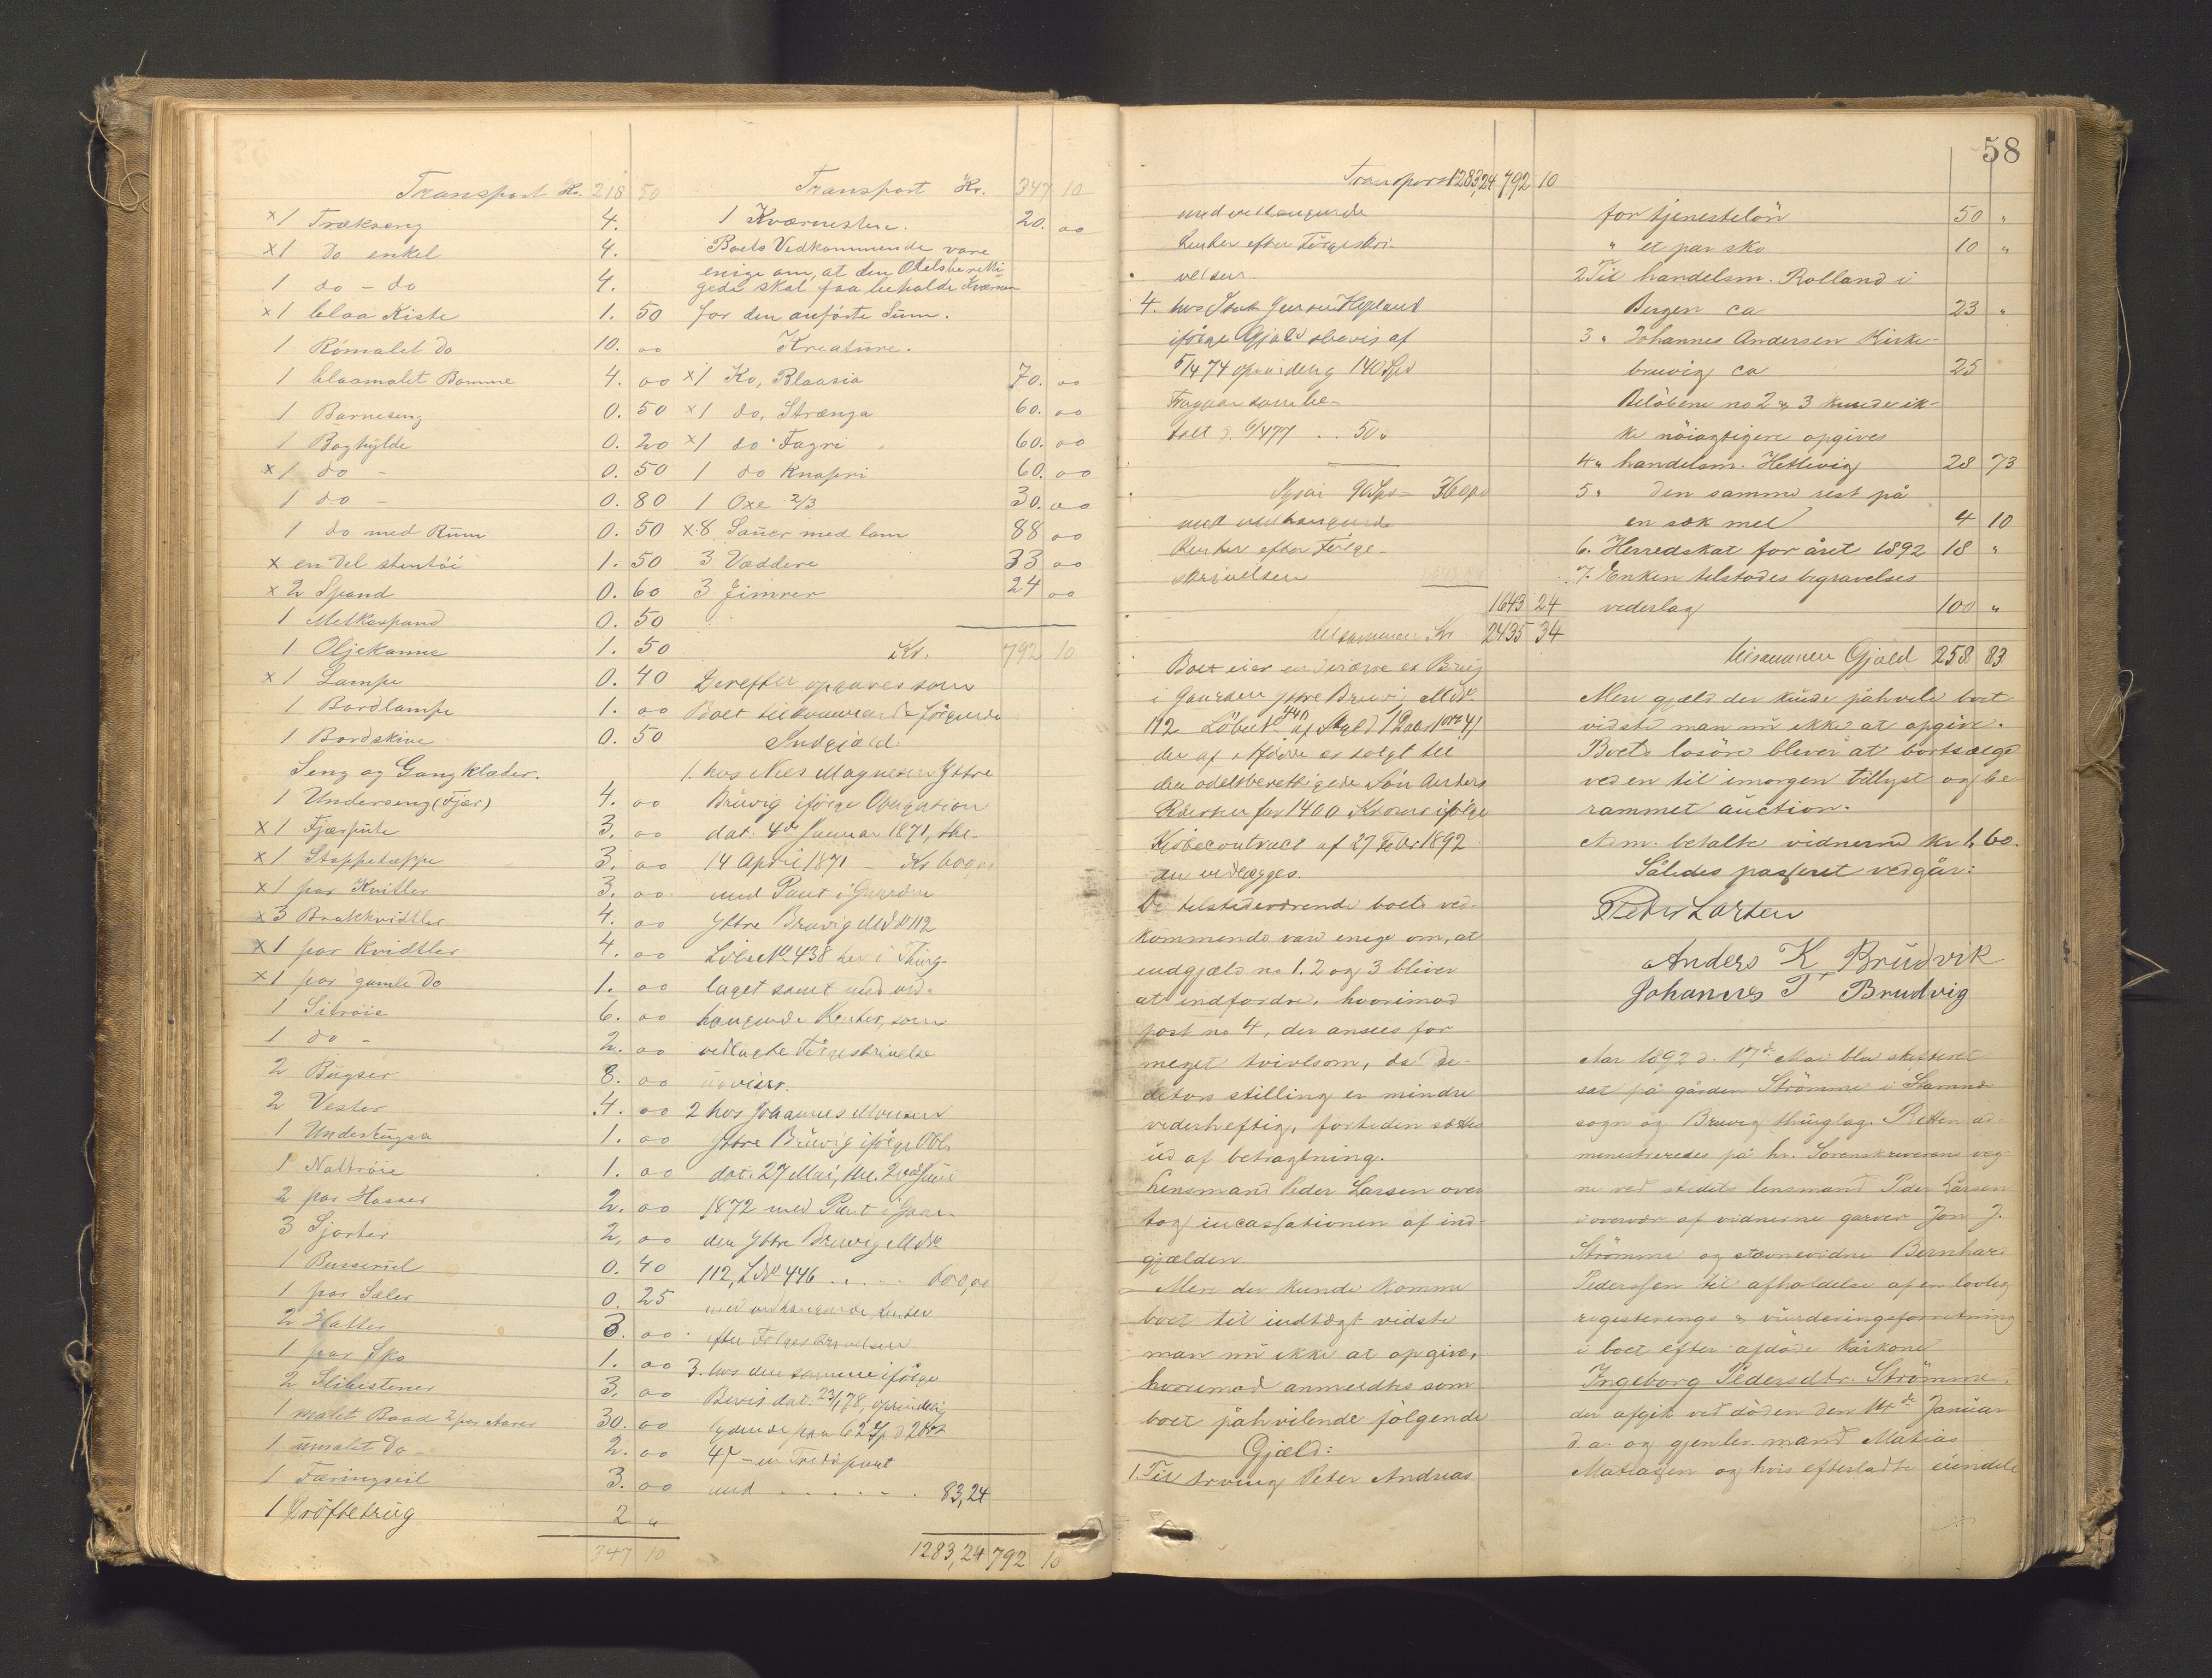 Transport Kr. 218 50
×1 Træksseng 4.
×1 Do enkel 4.
1 do - do 4.
×1 blaa Kiste 1. 50
1 Rømalet do 10. 00
1 blaamalet Bomme 4. 00
1 Barneseng 0. 50
1 Boghylde 0. 20
×1 do - 0. 50
1 do - 0. 80
1 do med Rum 0. 50
× en Del stentöi 1. 50
×2 Spand 0. 60
1 Melkespand 0. 50
1 Oljekanne 1. 50
×1 Lampe 0. 40
1 Bordlampe 1. 00
1 Bordskive 0. 50
Seng og Gangklæder.
1 Underseng (Fjær) 4. 00
×1 Fjærpute 3. 00
×1 Stoppetæppe 3. 00
×1 par Kvitler 3. 00
×3 Brakkvidtler 4. 00
×1 par Kvidtler 4. 00
×1 par gamle Do 1. 00
1 Sitröie 6. 00
1 do - 2. 00
2 Bugser 8. 00
2 Vester 4. 00
1 Underbugse 1. 00
1 Nattröie 1. 00
2 par Hosser 2. 00
3 Sjorter 2. 00
1 0. 40
1 par Sæler 0. 25
2 Hatter 3. 00
1 par Sko 1. 00
2 Slibestener 3. 00
1 malet Baad 2 par Aarer 30. 00
1 umalet Do - 2. 00
1 Færingseil 3. 00
1 Dröftetrug 2 "
347 10
Transport Kr. 347 10
1 Kværnesten. 20. 00
Boets Vedkommende vare
enige om, at den Odelsberetti-
gede skal faa beholde Kværnen
for den anförte Sum.
Kreature.
×1 Ko, Blaasia 70. 00
×1 do, Strænga 60. 00
×1 do Fagri 60. 00
1 do Knapri 60. 00
1 Oxe 2/3 30. 00
×8 Sauer med lam 88 00
3 Væddere 33 00
3 Jimrer 24 00
Kr. 792 10
Derefter opgaves som
Boet tilkommende følgende
Indgjæld:
1. hos Nils Magnesen Ytre
Bruvig ifølge Obligation
dat. 4de Januar 1871, thl.
14 April 1871 - Kr 600,00
med Pant i Gaarden
Ytre Bruvig M No 112
Löbe No 438 her i Thing-
laget samt med ved-
hængende Renter, som
vedlagte Følgeskrivelse
udviser.
2 hos Johannes Monsen
Ytre Bruvig ifølge Obl.
dat. 27 Mai, thl. 2 Juni
1872 med Pant i Gaar-
den Ytre Bruvig M No
112, L No 446 . . . . 600,00
med vedhængende Renter
efter Følgeskrivelsen
3. hos den samme ifølge
Bevis dat. 23/1 78, oprindelig
lydende paa 62 Sp 2 Ort
4 s - en Trediepart
med . . . . . . 83,24
1283,24 792 10
58
Transport 1283,24 792 10
med vedhængende
Renter efter Følgeskri-
velsen.
4. hos
ifølge Gjældsbevis af
5/1 74 oprindelig 140 Spd
Fragaar som be-
talt d. 6/4 77 . . 50 "
Igjen 90 Spd = 360,00
med vedhængende
Renter efter Følge-
skrivelsen
1643 24
tilsammen Kr 2435 34
Boet eier en del
i Gaarden Ytre Bruvig M No
112 Löbe No 441 af Skyld
der af Afdøde er solgt til
den odelsberettigede Søn Anders
Pedersen for 1400 Kroner ifølge
Kjöbecontract af 27 Febr 1892
der vedlægges.
De tilstedeværende boets ved-
kommende vare enige om, at
indgjæld no 1. 2 og 3 bliver
at indfordre, hvorimod
post no 4, der ansees for
meget tvivlsom, da de-
bitors stilling er mindre
vederheftig, fortiden sættes
ud af betragtning.
Lensmand Peder Larsen over
tog incassationen af ind-
gjælden.
Mere der kunde komme
boet til indtægt vidste
man nu ikke at opgive,
hvorimod anmeldtes som
boet påhvilende følgende
Gjæld:
1. Til Arving Peter Andreas
for tjenestelön 50 "
" et par sko 10 "
2 Til handelsm. Rolland i
Bergen ca 23 "
3 " Johannes Andersen Kirke-
bruvig ca 25
Belöbene no 2 & 3 kunde ik-
ke nöiagtigere opgives
4 " handelsm. Hettevig 28 73
5 " den samme rest på
en sæk mel 4 10
6. Herredskat for året 1892 18 "
7. Enken tilstodes begravelses
vederlag 100 "
tilsammen Gjæld 258 83
Mere gjæld der kunde påhvile boet
vidste man nu ikke at opgive.
Boets losöre bliver at bortsælge
ved en til imorgen tillyst og be-
rammet auction.
Adm. betalte vidnerne kr 1,60.
Således passeret vedgår:
Peder Larsen
Anders K Brudvik
Johannes T Brudvig
Aar 1892 d. 17de Mai blev skifteret
sat på gården Strömme i Stamnes
sogn og Bruvig thinglag. Retten ad-
ministreredes på hr. Sorenskriverens veg-
ne ved stedets lensmand Peder Larsen
i overvær af vidnerne garver Jon J.
Strömme og stævnevidne Bernhard
Pederssen til afholdelse af en lovlig
registerings & vurderingsforretning
i boet efter afdöde kårkone
Ingeborg Pedersdtr. Strömme,
der afgik ved döden den 14de Januar
d.a. og gjenlev. mand Matias
Matiassen og hvis efterladte eiendele